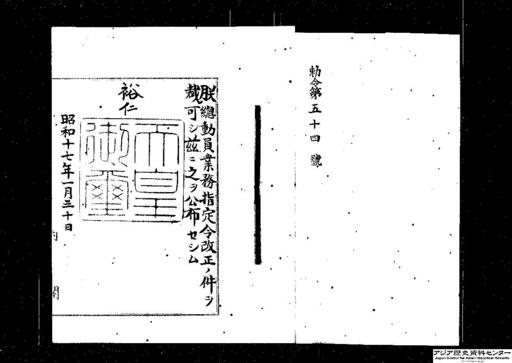 勅令第五十四號
朕總動員業務指定令改正ノ件ヲ
裁可シ茲ニ之ヲ公布セシム
裕仁
天皇
御璽
昭和十七年一月三十日
内
閣
アジア歴史資料センター
Japan Center for Asian Historical Records